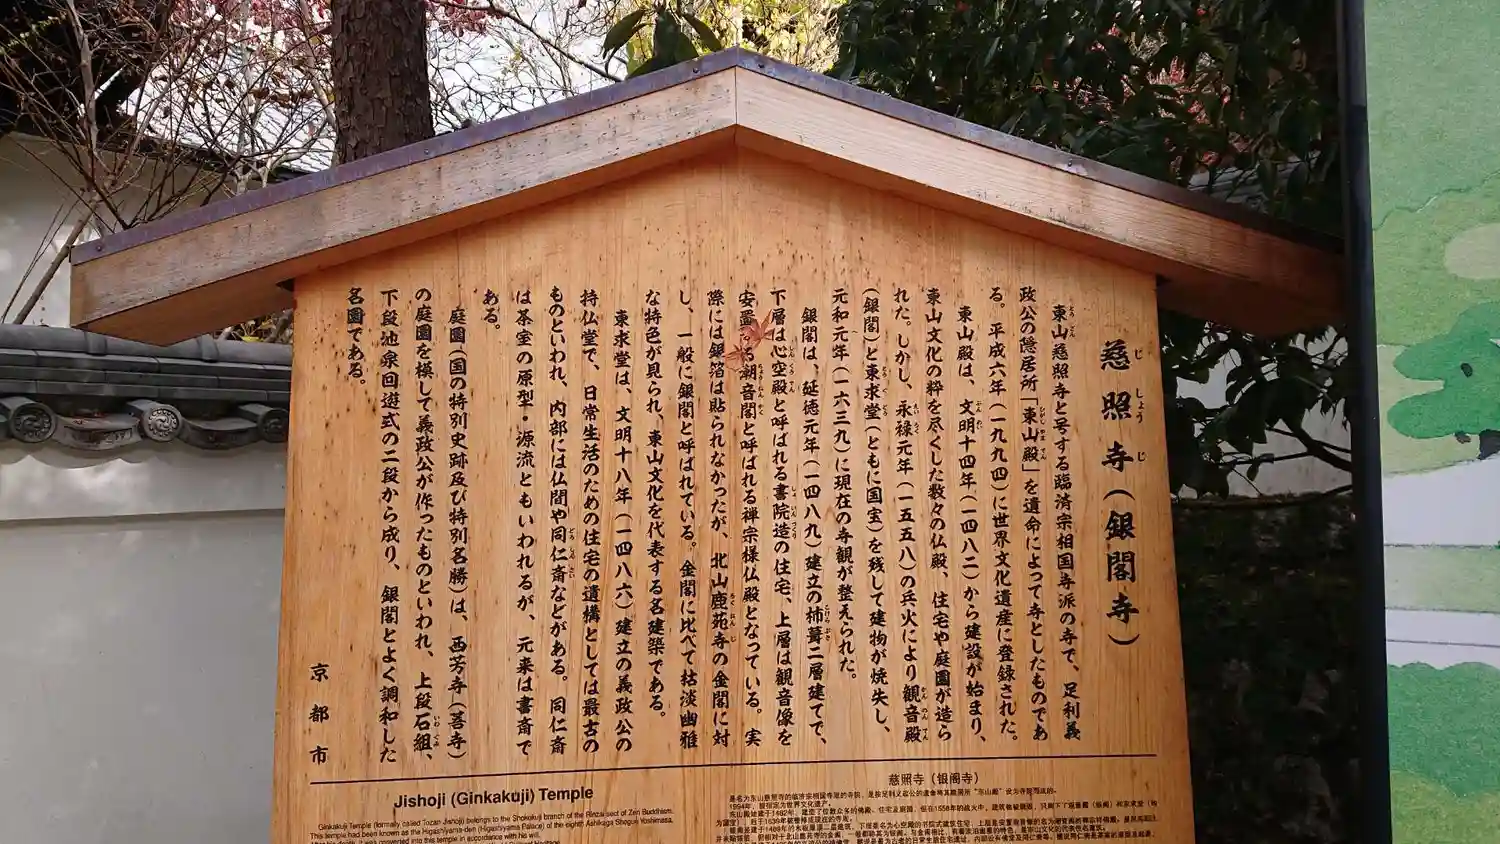 慈照寺（銀閣寺）
じしょうじ
東山慈照寺と号する臨済宗相国寺派の寺で、足利義
政公の隠居所「東山殿」を遺命によって寺としたものであ
る。平成六年（一九九四）に世界文化遺産に登録された。
東山殿は、文明十四年（一四八二）から建設が始まり、
東山文化の粋を尽くした数々の仏殿、住宅や庭園が造ら
れた。しかし、永禄元年（一五五八）の兵火により観音殿
（銀閣）と東求堂（ともに国宝）を残して建物が焼失し、
元和元年（一六三九）に現在の寺観が整えられた。
銀閣は、延徳元年（一四八九）建立の杮葺二層建てで、
下層は心空殿と呼ばれる書院造の住宅、上層は観音像を
安置る潮音閣と呼ばれる禅宗様仏殿となっている。実
際には銀箔は貼られなかったが、北山鹿苑寺の金閣に対
し、一般に銀閣と呼ばれている。金閣に比べて枯淡幽雅
な特色が見られ、東山文化を代表する名建築である。
東求堂は、文明十八年（一四八六）建立の義政公の
持仏堂で、日常生活のための住宅の遺構としては最古の
ものといわれ、内部には仏間や同仁斎などがある。同仁斎
は茶室の原型・源流ともいわれるが、元来は書斎で
ある。
庭園（国の特別史跡及び特別名勝）は、西芳寺（苔寺）
の庭園を模して義政公が作ったものといわれ、上段石組、
下段池泉回遊式の二段から成り、銀閣とよく調和した
名園である。
京都市
Jishoji (Ginkakuji) Temple
Ginkakuji Temple (formally called Tozan Jishoji) belongs to the Shokokuji branch of the Rinzai sect of Zen Buddhism.
This temple had been known as the Higashiyama-den (Higashiyama Palace) of the eighth Ashikaga Shogun Yoshimasa.
After his death, it was converted into this temple in accordance with his will.
慈照寺（银阁寺）